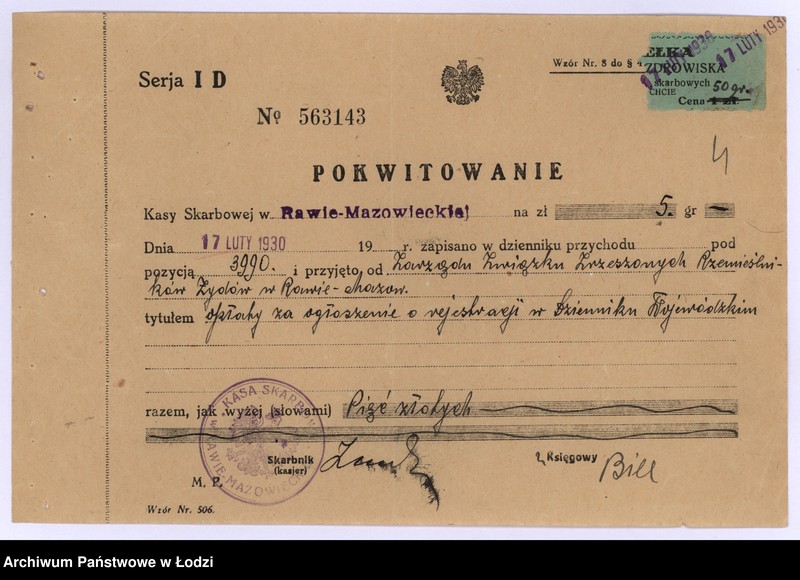 Serja I D
№ 563143
Wzór Nr. 8 do §
17 LUTY 1930
17 LUTY 1930
EŁKA
ZDROWISKA
skarbowych
CHCIE
50 gr.
Cena 1 zł.
4
POKWITOWANIE
Kasy Skarbowej w Rawie-Mazowieckiej na zł 5. gr —
Dnia 17 LUTY 1930 19 r. zapisano w dzienniku przychodu pod
pozycją 3990. i przyjęto od Zarządu Związku Zrzeszonych Rzemieślni-
ków Żydów w Rawie-Mazow.
tytułem Opłaty za ogłoszenie o rejestracji w Dzienniku Wojewódzkim
razem, jak wyżej (słowami) Pięć złotych
KASA SKARB
RAWIE-MAZOWIECK
Skarbnik
(kasjer)
Księgowy
Bill
M. P.
Wzór Nr. 506.
Archiwum Państwowe w Łodzi